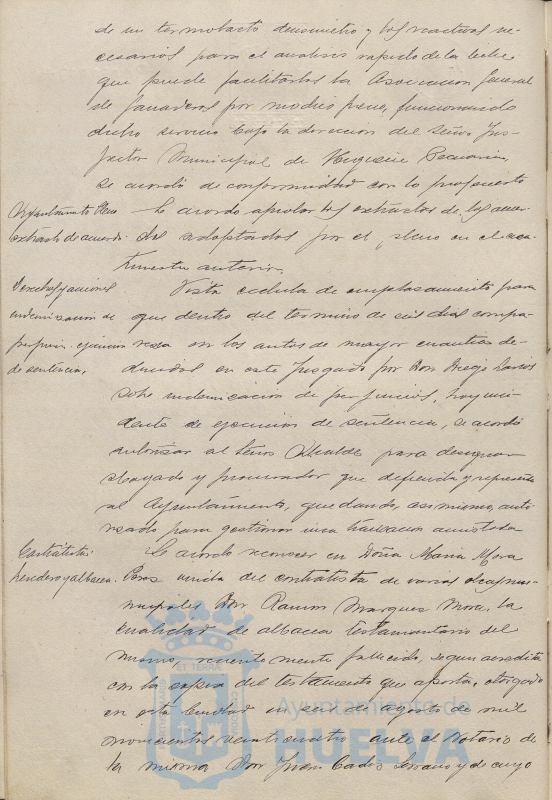 de un termolacto densimetro y los reactivos ne-
cesarios para el analisis rapido de la leche
que puede facilitarlos la Asociacion General
de Ganaderos por modico precio, funcionando
dicho servicio bajo la direccion del Señor Ins-
pector Municipal de Higiene Pecuaria,
se acordó de conformidad con lo propuesto
Ayuntamiento Pleno
extracto de acuerdo.
Se acordo aprobar los extractos de los acuer-
dos adoptados por el pleno en el cua-
trimestre anterior.
Derechos y acciones
indemnizacion de
perjuic. ejecucion
de sentencia.
Vista cedula de emplazamiento para
que dentro del termino de seis dias compa-
rezca en los autos de mayor cuantia de-
ducidos en este Juzgado por Don Diego
sobre indemnizacion de perjuicios, hoy inci-
dente de ejecucion de sentencia, se acordó
autorizar al Señor Alcalde para designar
abogado y procurador que defienda y represente
al Ayuntamiento, quedando, asi mismo, auto-
rizado para gestionar una transaccion amistosa
Contratistas
heredero y albacea.
Se acordo reconocer en Doña Maria Mora
viuda del contratista de varias obras mu-
nicipales Don Ramon Marquez Mora, la
cualidad de albacea testamentario del
mismo, recientemente fallecido, segun acredita
con la copia del testamento que aporta, otorgado
en esta Ciudad en seis de agosto de mil
novecientos veinticuatro ante el Notario de
la misma Don Juan Cadiz Serrano y de cuyo
Ayuntamiento de
HUELVA